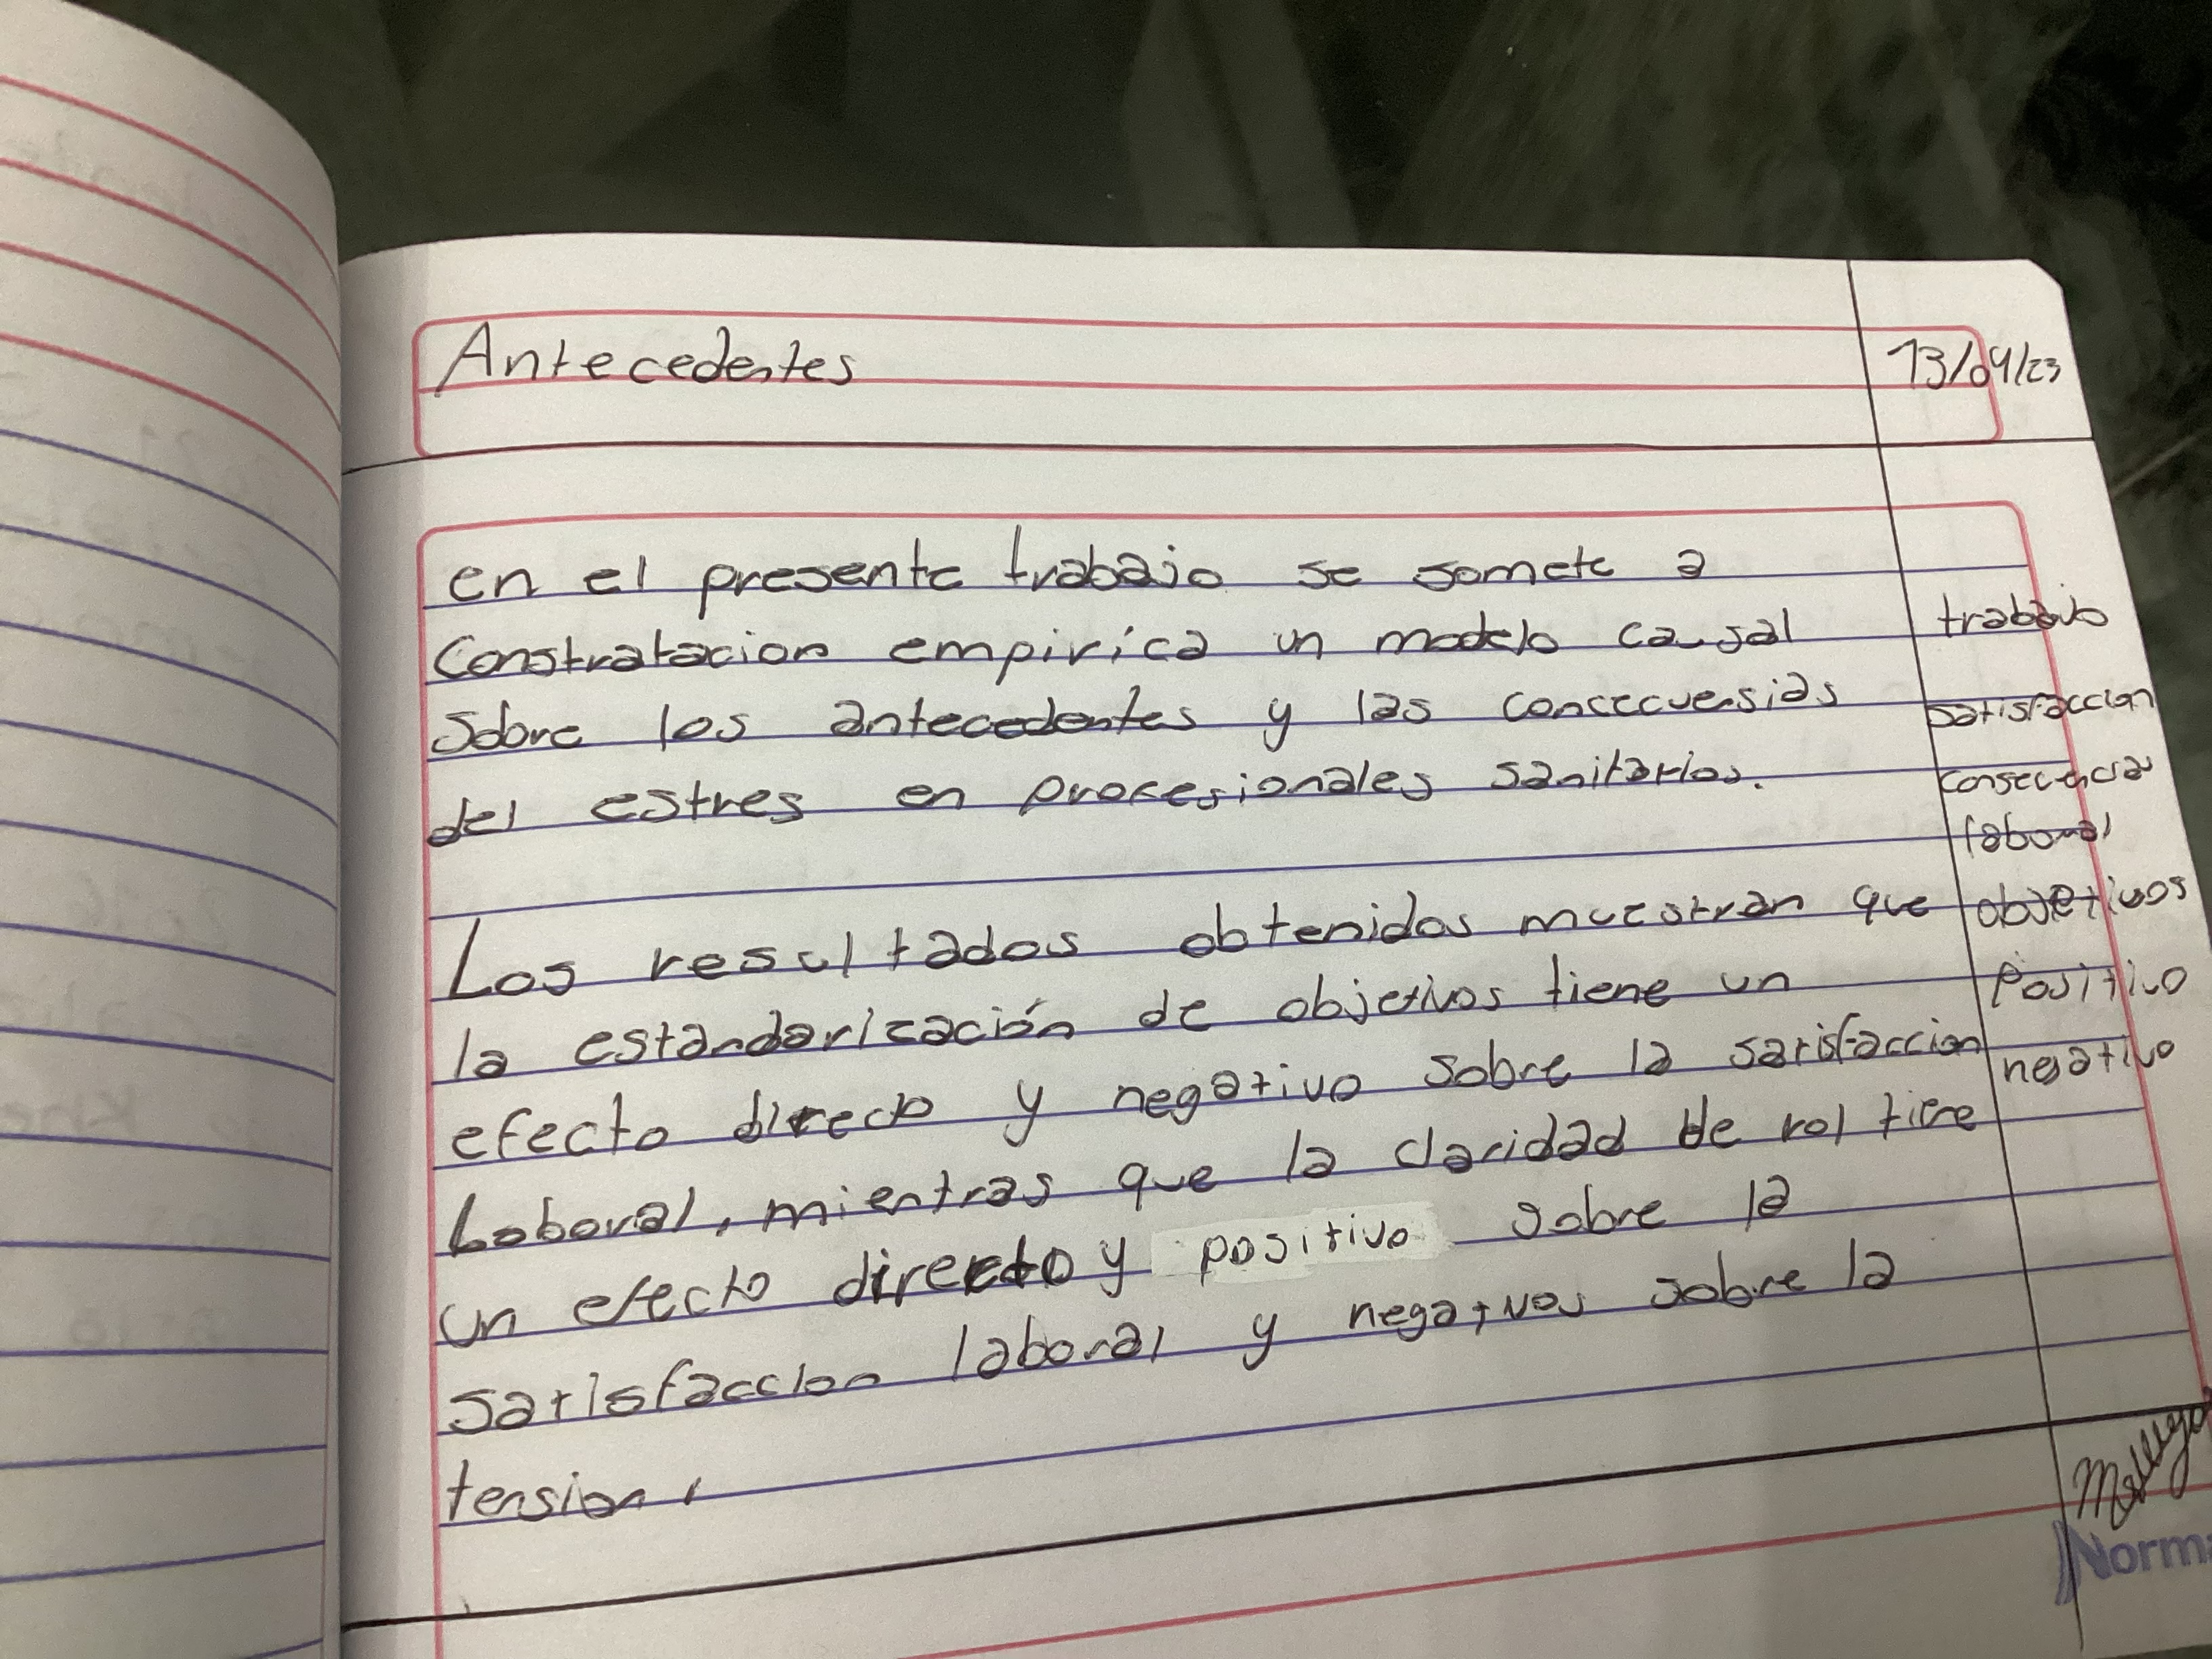 Antecedentes
13/04/23
en el presente trabajo se somete a
Constratacion empirica un modelo causal
Sobre los antecedentes y las concecuensias
del estres en procesionales sanitarios.
Los resultados obtenidos muestran que
la estandarización de objetivos tiene un
efecto directo y negativo sobre la satisfaccion
Laboral, mientras que la claridad de rol tiene
un efecto directo y positivo sobre la
satisfaccion laboral y negativos sobre la
tension.
trabajo
satisfaccion
consecuencias
laboral
objetivos
Positivo
negativo
Norma